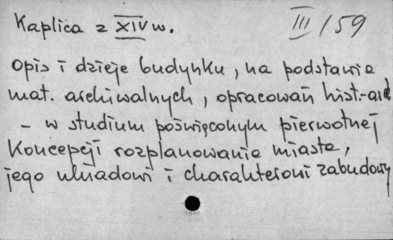 Kaplica z XIV w.
III/159
opis i dzieje budynku, na podstawie
mat. archiwalnych, opracowań hist.-arch
- w studium poświęconym pierwotnej
koncepcji rozplanowania miasta,
jego układowi i charakterowi zabudowy